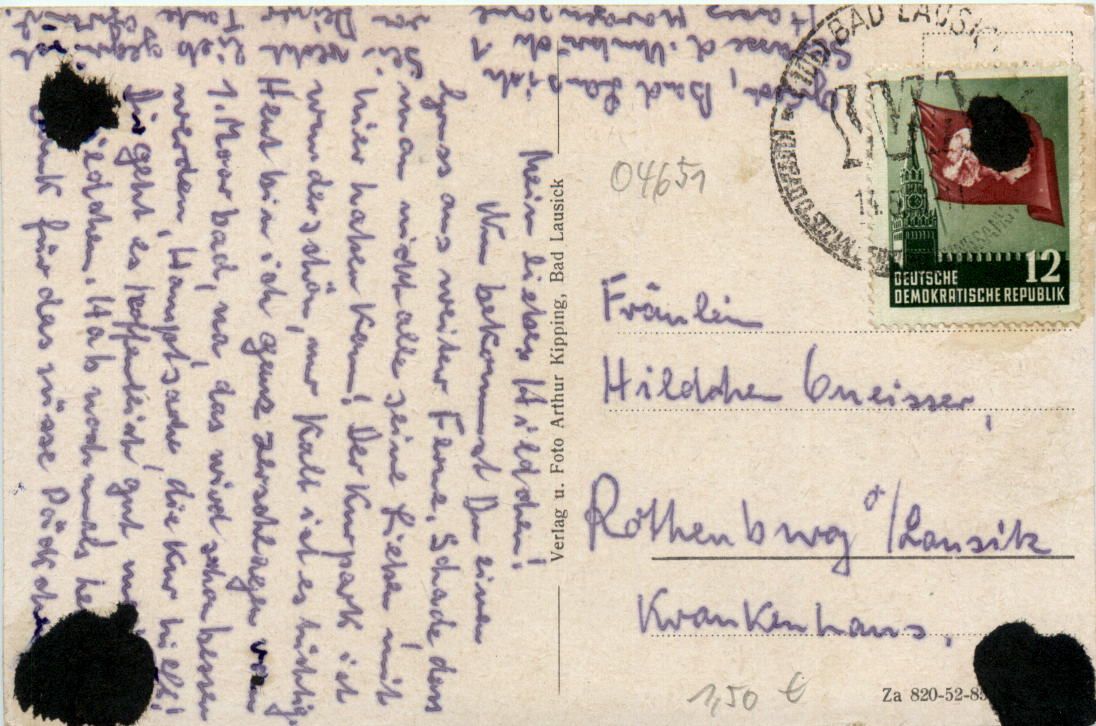 BAD LAUSICK
Bad Lausick
Haus
Mein liebes Hildchen!
Nun bekommst Du einen
Gruss aus weiter Ferne. Schade dass
man nicht alle seine Lieben mit
hier haben kann! Der Kurpark ist
wunderschön, nur kalt ist es tüchtig.
Heut bin ich ganz zerschlagen vom
1. Moorbad, na, das wird schon besser
werden, Hauptsache die Kur hilft!
Dir geht es hoffentlich gut
Hab nochmals
für das süsse Päckchen
Verlag u. Foto Arthur Kipping, Bad Lausick
04651
DEUTSCHE
DEMOKRATISCHE REPUBLIK
12
Fräulein
Hildchen Gneisser,
Rothenburg O/Lausitz
Krankenhaus,
1,50 €
Za 820-52-85